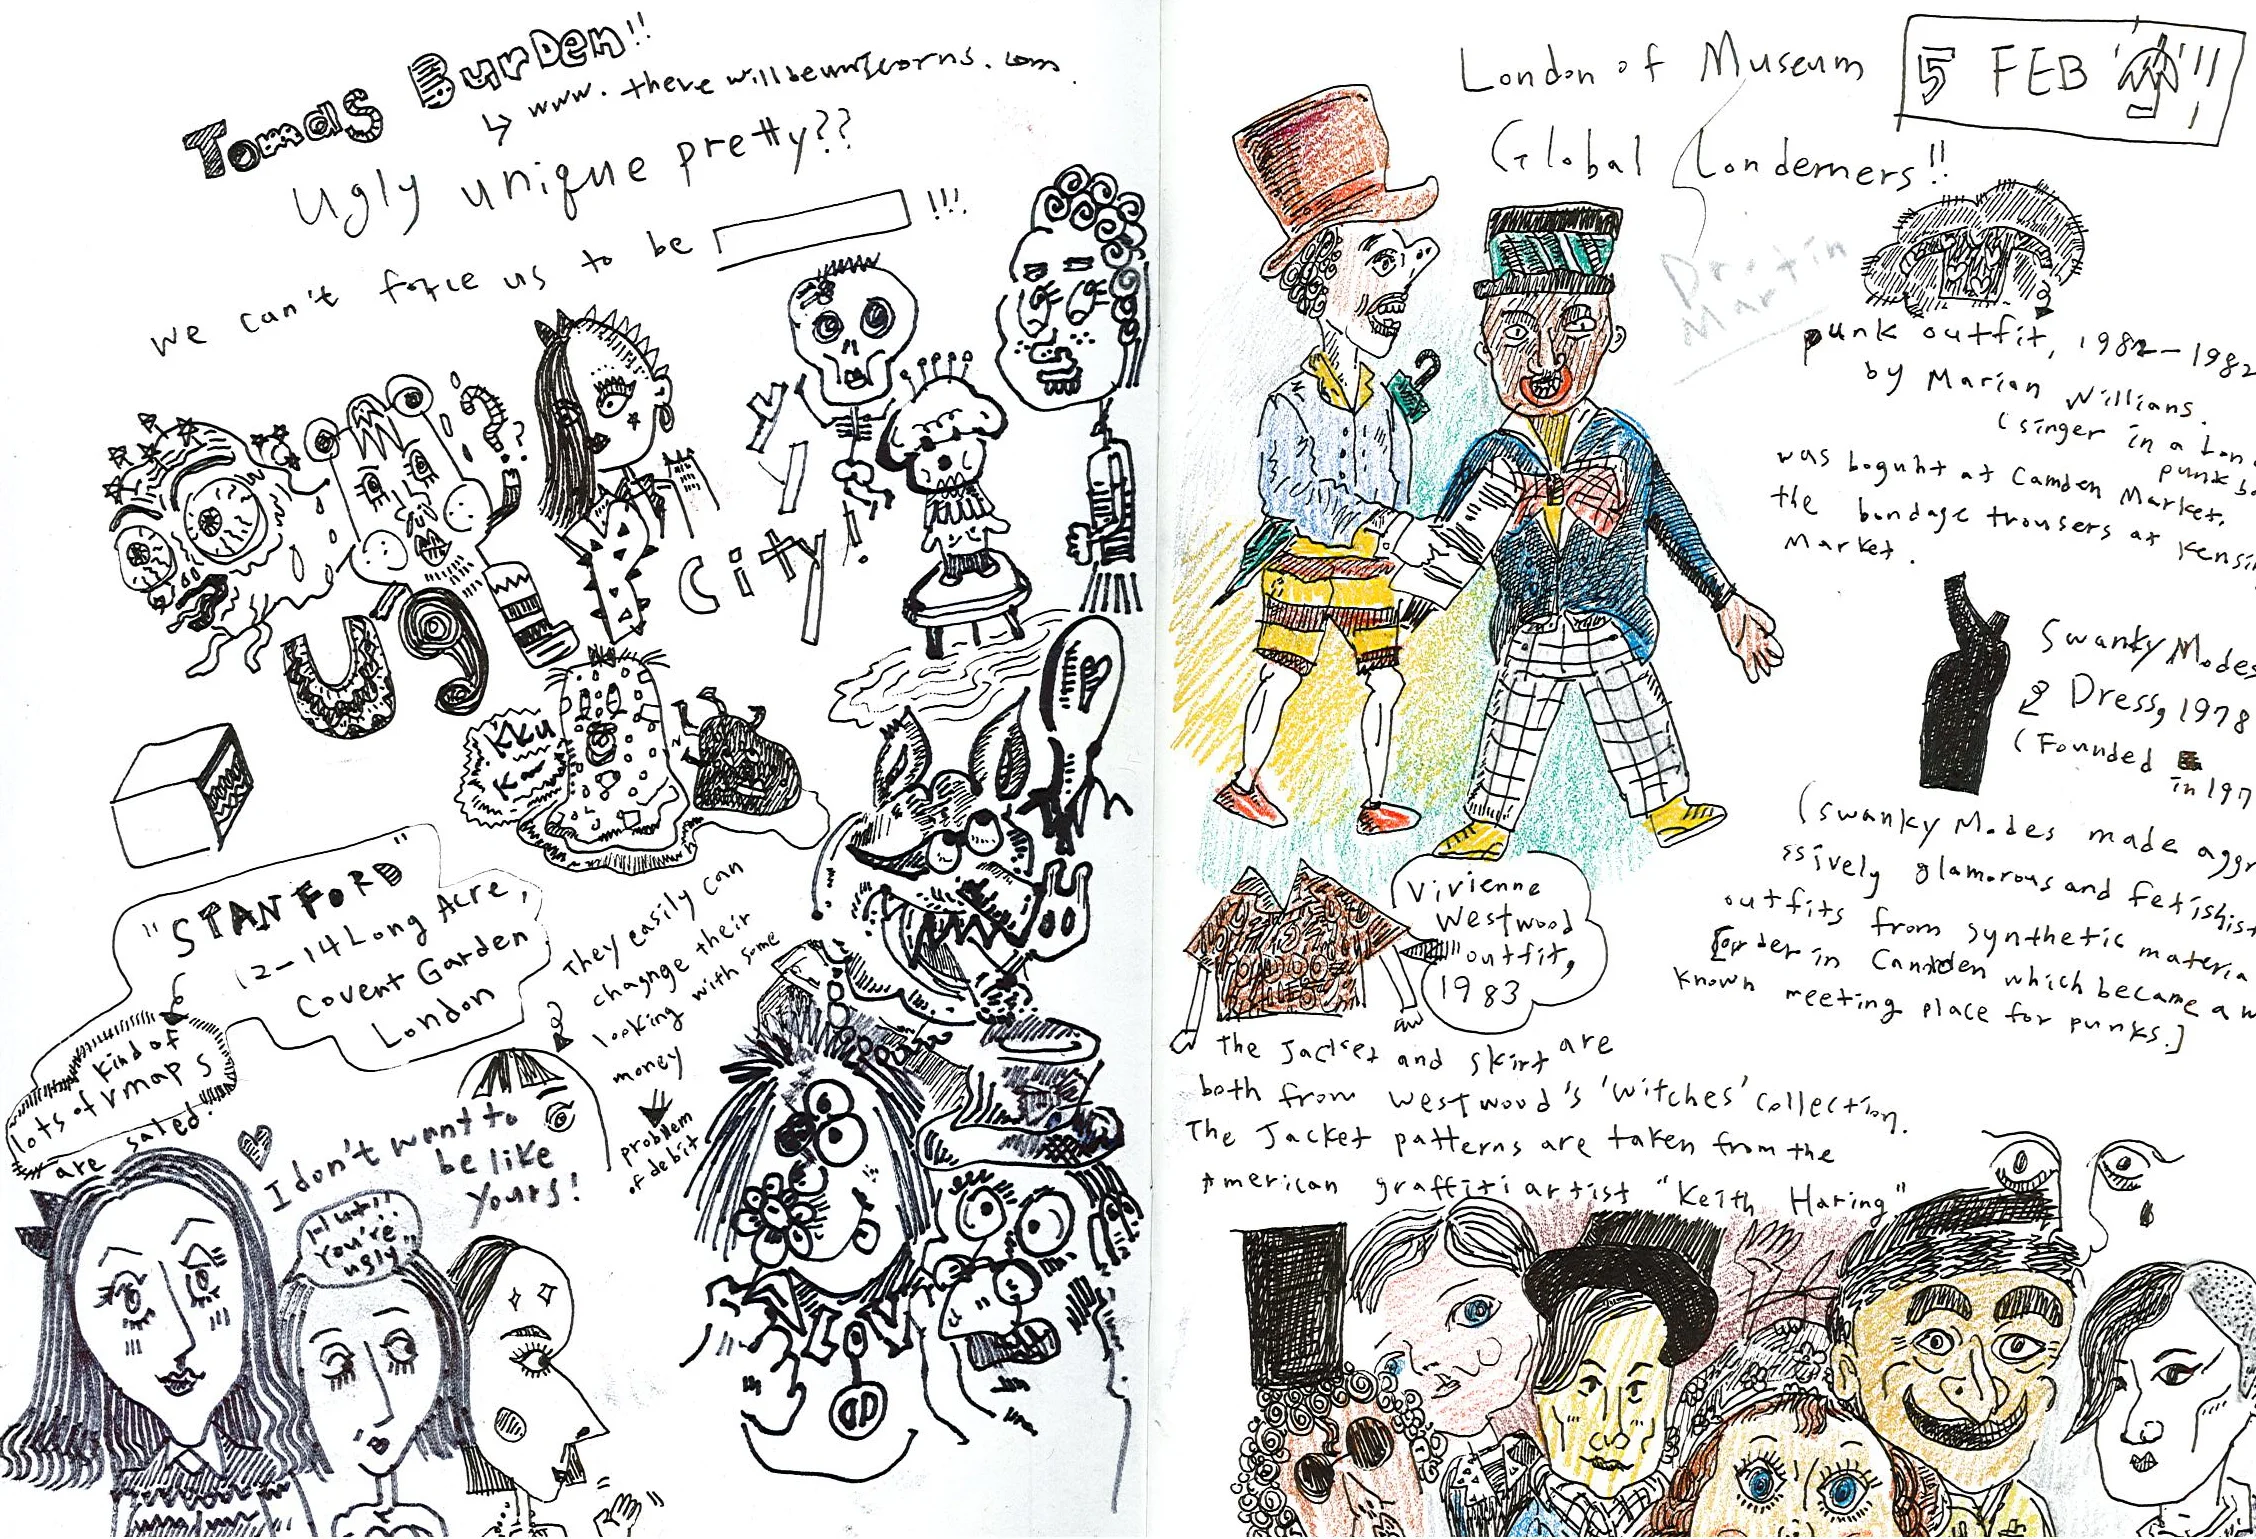 Tomas Burden!!
www.therewillbeunicorns.com
Ugly unique pretty??
we can't force us to be !!!
UgLY
city!
KKu
Kar
"STANFORD"
12-14 Long Acre,
Covent Garden
London
lots of kind of
maps
are saled.
They easily can
chagnge their
looking with some
money
problem
of debit
I don't want to
be like
yours!
You're
ugly"
London of Museum
5 FEB !!!
Global Londerners!!
Martin
punk outfit, 1982-1982
by Marian Willians.
(singer in a Lon
punk
was boguht at Camden Market.
the bondage trousers at Kensin
Market.
Swanky Modes
Dress, 1978
(Founded
in 197
(Swanky Modes made aggr
ssively glamorous and fetishist
outfits from synthetic materia
in Camden which became a w
known meeting place for punks.]
Vivienne
Westwood
outfit,
1983
the Jacket and skirt are
both from Westwood's 'Witches' collection.
The Jacket patterns are taken from the
American graffiti artist "Keith Haring"